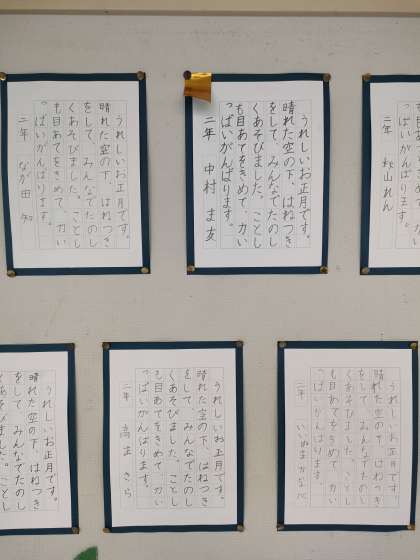 も目あてをきめて、力い
っぱいがんばります。
二年 秋山 れん
うれしいお正月です。
晴れた空の下、はねつき
をして、みんなでたのし
くあそびました。ことし
も目あてをきめて、力い
っぱいがんばります。
二年 中村 ま友
うれしいお正月です。
晴れた空の下、はねつき
をして、みんなでたのし
くあそびました。ことし
も目あてをきめて、力い
っぱいがんばります。
二年 なが田 知
うれしいお正月です。
晴れた空の下、はねつき
をして、みんなでたのし
くあそびました。ことし
も目あてをきめて、力い
っぱいがんばります。
二年 いいぬま かな
うれしいお正月です。
晴れた空の下、はねつき
をして、みんなでたのし
くあそびました。ことし
も目あてをきめて、力い
っぱいがんばります。
二年 高ま さら
うれしいお正月です。
晴れた空の下、はねつき
をして、みんなでたのし
くあそびました。ことし